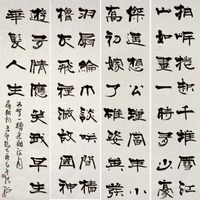 拍岸捲起千堆雪江
山如畫一時多少豪
傑遙想公瑾當年小
喬初嫁了雄姿英發
羽扇綸巾談笑間檣
櫓灰飛煙滅故國神
遊多情應笑我早生
華髮人生
如夢一樽還酹江月